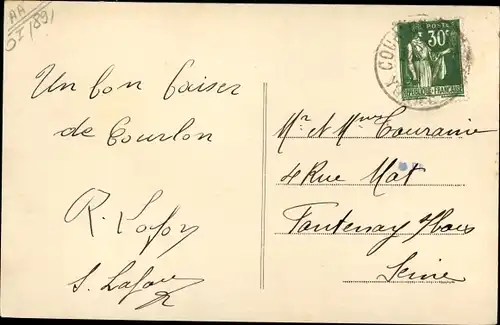 AA
Un bon baiser
de Courlon
R. Lafon
S. Lafon
POSTES
30c
REPUBLIQUE FRANÇAISE
COU
Mr et Mme Touraine
4 Rue Mot
Fontenay s/Bois
Seine